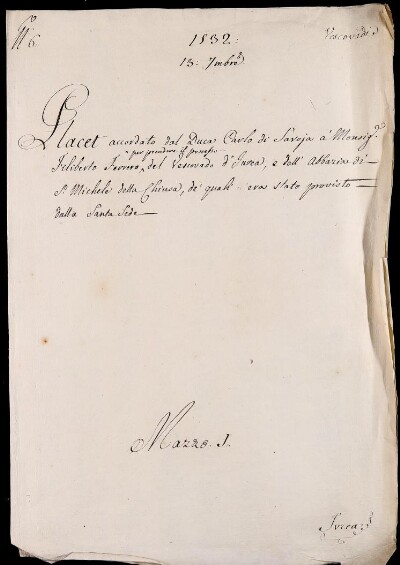 N.º 6.
1532:
13: 7mbre
Vescovadi
Placet accordato dal Duca Carlo di Savoja à Monsig.r
per prendere il possesso
Filiberto Ferrero, del Vescovado d'Ivrea, e dell'Abbazia di
S. Michele della Chiusa, de' quali era stato provisto
dalla Santa Sede
Mazzo. 1.
Ivrea: